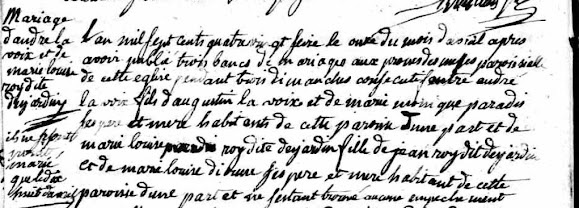 Mariage
d'andre la
voix et de
marie louise
roy dite
desjardins
l'an mil sept cent quatre vingt seize le onze du mois d'avril apres
avoir publié trois bancs de mariages aux prones des messes paroissiale
de cette eglise pendant trois dimanches consecutif entre andré
la voix fils d'augustin la voix et de marie monique paradis
ses pere et mere habitants de cette paroisse d'une part et de
marie louise roy dite desjardin fille de jean roy dit desjardin
et de marie louise dionne ses pere et mere habitant de cette
paroisse d'une part et ne s'estant trouvé aucune empechement